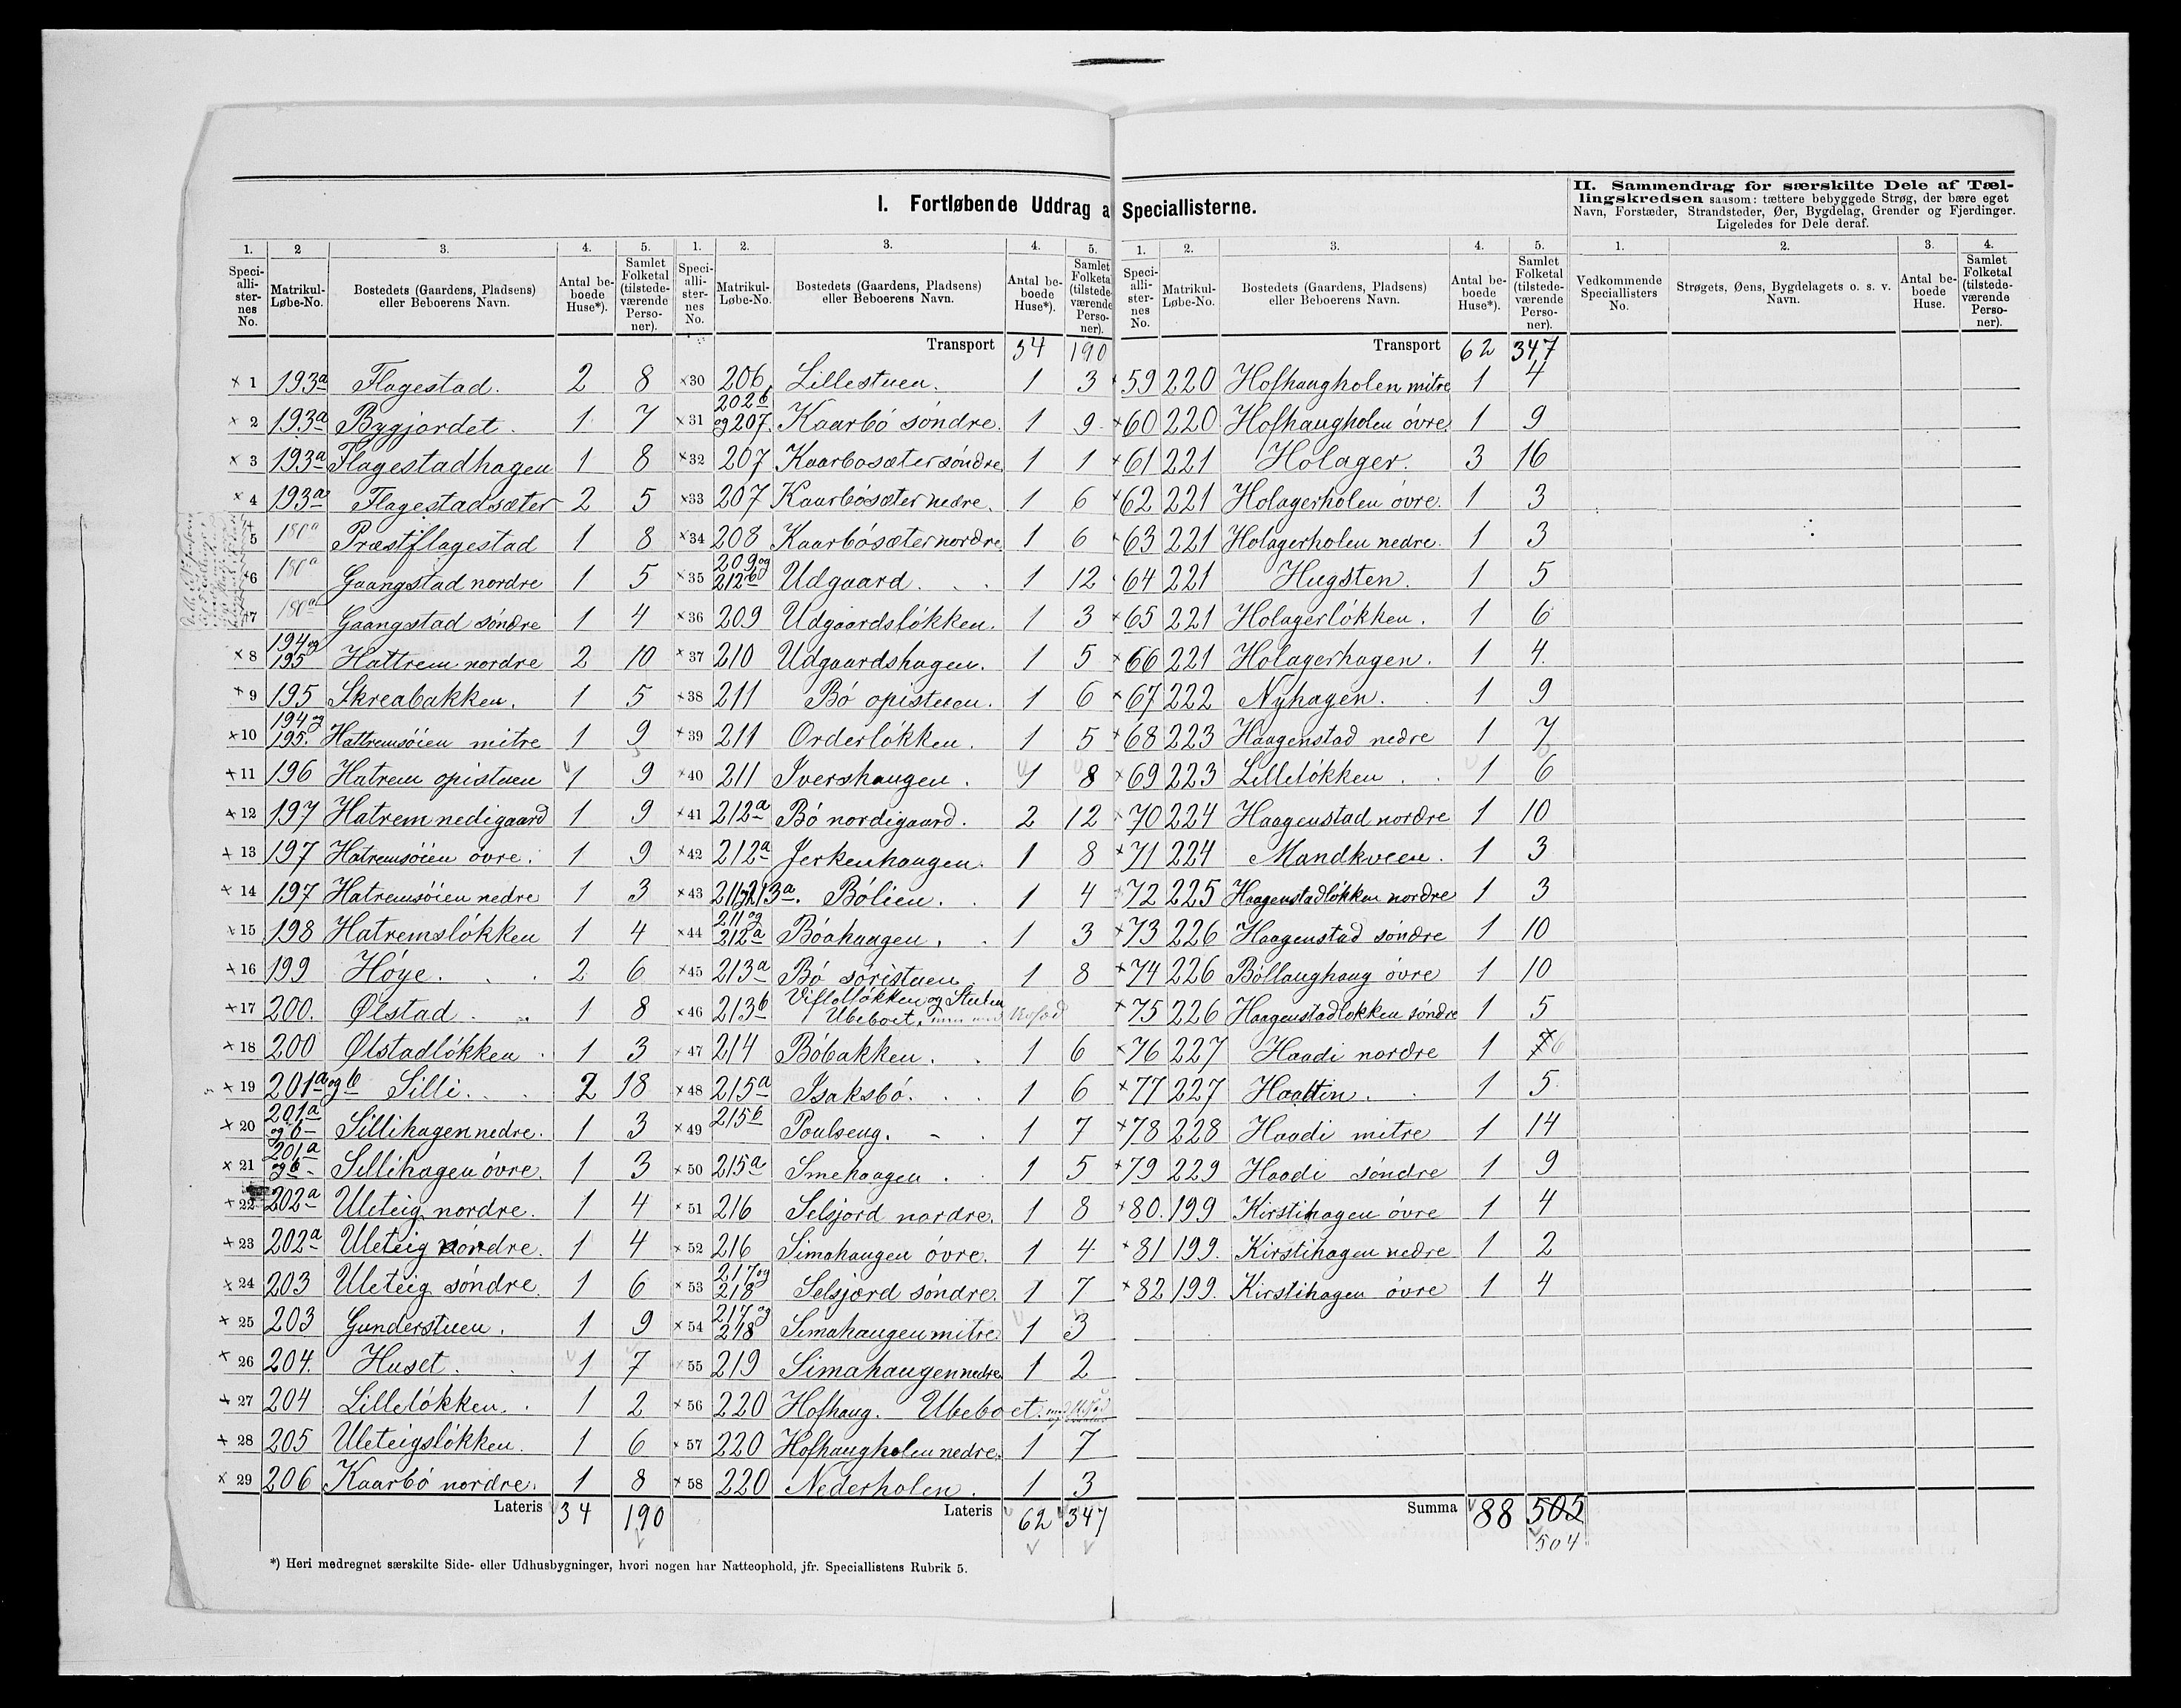 I. Fortløbende Uddrag a Speciallisterne.
II. Sammendrag for særskilte Dele af Tæl-
lingskredsen saasom: tættere bebyggede Strøg, der bære eget
Navn, Forstæder, Strandsteder, Øer, Bygdelag, Grender og Fjerdinger.
Ligeledes for Dele deraf.
1. 2 3. 4. 5.
Speci-alli-ster-nes No. Matrikul-Løbe-No. Bostedets (Gaardens, Pladsens) eller Beboerens Navn. Antal be-boede Huse*). Samlet Folketal (tilstede-værende Perso-ner).
× 1 193a Flagestad. 2 8
× 2 193a Bygjordet. 1 7
× 3 193a Flagestadhagen 1 8
× 4 193a Flagestadsæter 2 5
5 180a Præstflagestad 1 8
×6 180a Gaangstad nordre 1 5
×7 180a Gaangstad søndre 1 4
× 8 194 og 195 Hattrem nordre 2 10
× 9 195 Skreabakken. 1 5
×10 194 og 195. Hattremsöien mitre 1 9
×11 196 Hatrem opistuen 1 9
×12 197 Hatrem nedigaard 1 9
×13 197 Hatremsöien övre. 1 9
×14 197 Hatremsöien nedre 1 3
×15 198 Hatremslökken 1 4
×16 199 Höye. 2 6
×17 200. Ølstad. 1 8
×18 200 Ølstadlökken. 1 3
×19 201a og b Silli. 2 18
×20 201a og b Sillihagen nedre. 1 3
×21 201a og b Sillihagen övre. 1 3
×22 202a Uleteig nordre. 1 4
×23 202a Uleteig nordre. 1 4
×24 203 Uleteig söndre. 1 6
×25 203 Gunderstuen. 1 9
×26 204. Huset. 1 7
×27 204 Lillelökken. 1 2
×28 205 Uleteigslökken. 1 6
×29 206 Kaarbö nordre. 1 8
Lateris 34 190
1. 2. 3. 4. 5.
Speci-alli-ster-nes No. Matrikul-Løbe-No. Bostedets (Gaardens, Pladsens) eller Beboerens Navn. Antal be-boede Huse*). Samlet Folketa (tilstede-værende Perso-ner).
Transport 34 190
×30 206 Lillestuen. 1 3
×31 202b og 207. Kaarbö söndre. 1 9
×32 207 Kaarbosæter söndre. 1 1
×33 207 Kaarbösæter nedre. 1 6
×34 208 Kaarbösæter nordre. 1 6
×35 209 og 212b Udgaard. 1 12
×36 209 Udgaardslökken. 1 3
×37 210 Udgaardshagen. 1 5
×38 211 Bö opistuen. 1 6
×39 211 Orderlökken. 1 5
×40 211 Ivershaugen. 1 8
×41 212a Bö nordigaard. 2 12
×42 212a Jerkenhaugen. 1 8
×43 211 og 213a. Bölien. 1 4
×44 211 og 212a Böahaugen. 1 3
×45 213a Bö söristuen 1 8
×46 213b og Ubeboet.
47 214 Böbakken. 1 6
×48 215a Isaksbö. 1 6
×49 215b Poulseng. 1 7
×50 215a Smehaagen. 1 5
×51 216 Selsjord nordre. 1 8
×52 216 Simahaugen övre. 1 4
×53 217 og 218 Selsjord söndre. 1 7
×54 217 og 218 Simahaugen mitre. 1 3
55 219 Simahaugen nedre 1 2
×56 220 Hofhaug. Ubeboet.
×57 220 Hofhaugholen nedre. 1 7
×58 220 Nederholen. 1 3
Lateris 62 347
1. 2. 3. 4. 5.
Speci-alli-ster-nes No. Matrikul-Løbe-No. Bostedets (Gaardens, Pladsens) eller Beboerens Navn. Antal be-boede Huse*). Samlet Folketal (tilstede-værende Perso-ner).
Transport 62 347
×59 220 Hofhaugholen mitre 1 4
×60 220 Hofhaugholen övre. 1 9
×61 221 Holager. 3 16
×62 221 Holagerholen övre. 1 3
×63 221 Holagerholen nedre. 1 3
64 221 Hugsten. 1 5
×65 221 Holagerlökken. 1 6
×66 221 Holagerhagen. 1 4.
×67 222 Nyhagen. 1 9
×68 223 Haagenstad nedre 1 7
×69 223 Lillelökken. 1 6
×70 224 Haagenstad nordre 1 10
×71 224 Mandkveen. 1 3
×72 225 Haagenstadlökken nordre 1 3
×73 226 Haagenstad söndre 1 10
×74 226 Böllaughaug övre 1 10
×75 226 Haagenstadlokken söndre 1 5
×76 227 Haadi nordre 1 7 6
×77 227 Haattin. 1 5.
×78 228 Haadi mitre 1 14
×79 229 Haadi söndre 1 9
×80. 199 Kirstihagen övre 1 4
×81 199. Kirstihagen nedre 1 2
×82 199. Kirstihagen övre 1 4
Summa 88 505
504
1. 2. 3. 4.
Vedkommende Speciallisters No. Strøgets, Øens, Bygdelagets o. s. v. Navn. Antal be-boede Huse. Samlet Folketal (tilstede-værende Perso-ner).
*) Heri medregnet særskilte Side- eller Udhusbygninger, hvori nogen har Natteophold, jfr. Speciallistens Rubrik 5.